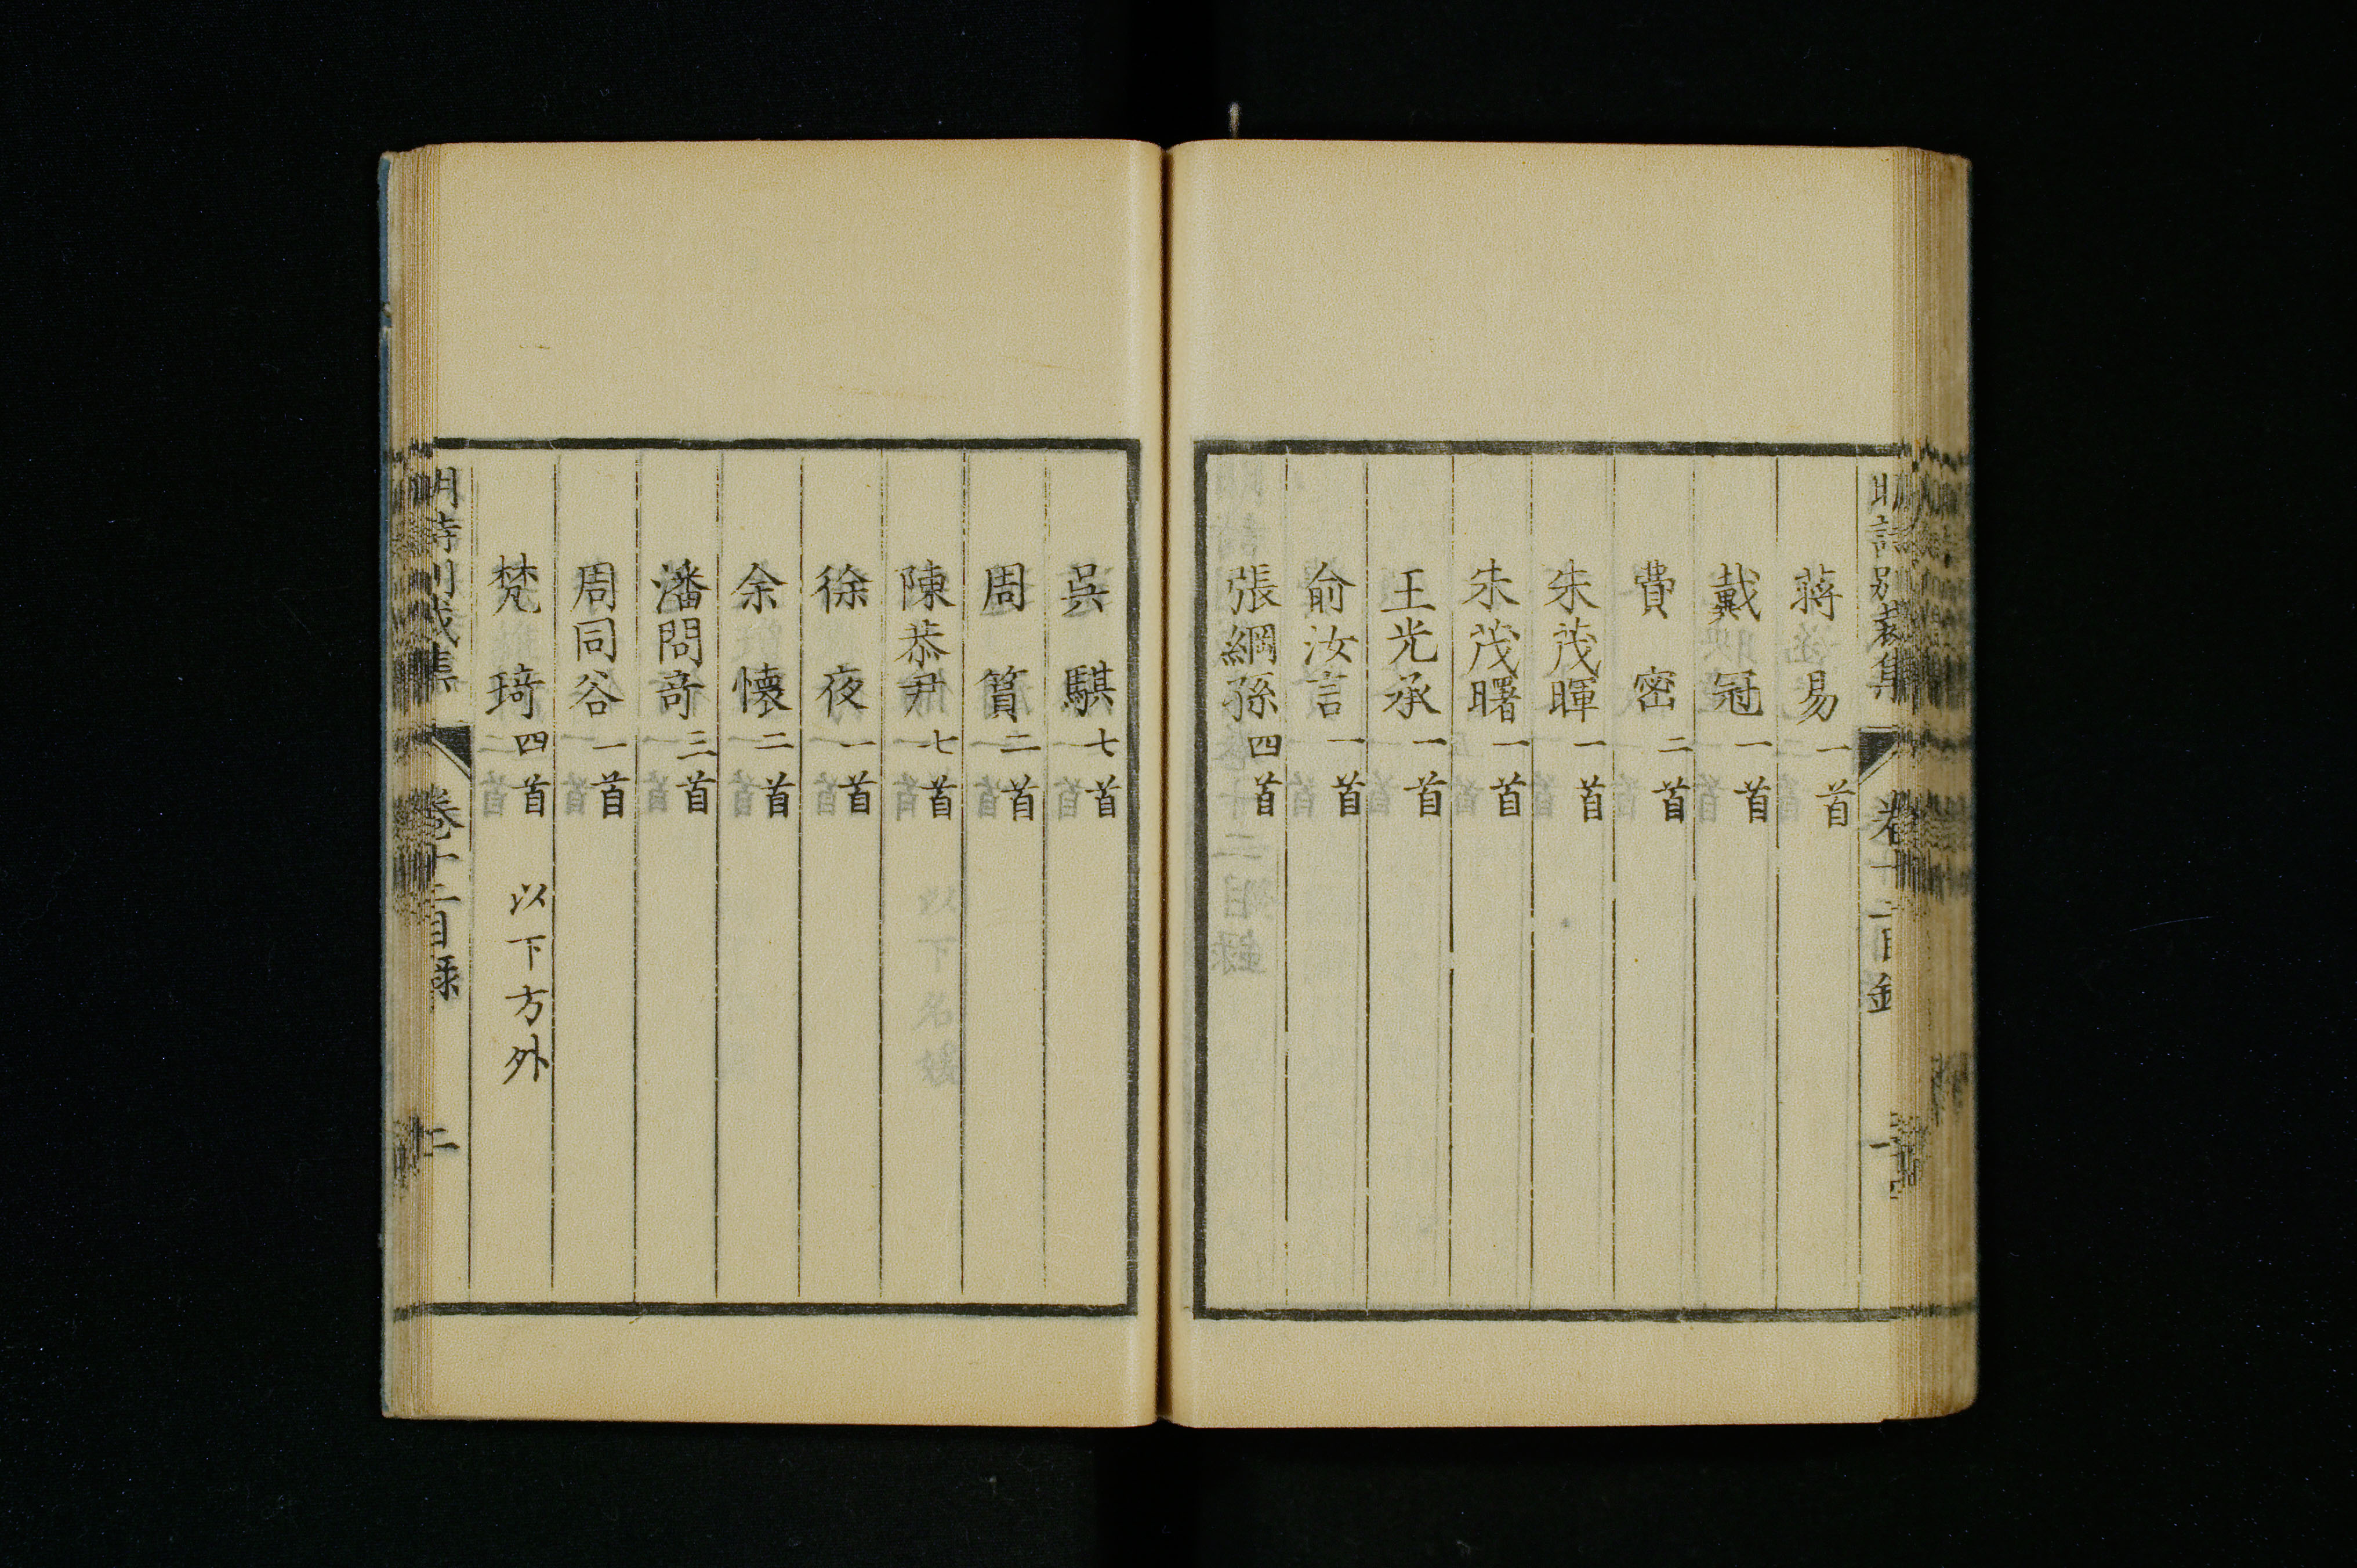 明詩別裁集 卷十二目錄 一
蔣易 一首
戴冠 一首
費密 二首
朱茂暉 一首
朱茂曙 一首
王光承 一首
俞汝言 一首
張綱孫 四首
吳騏 七首
周篔 二首
陳恭尹 七首
徐夜 一首
余懷 二首
潘問奇 三首
周同谷 一首
梵琦 四首 以下方外
明詩別裁集 卷十二目錄 二